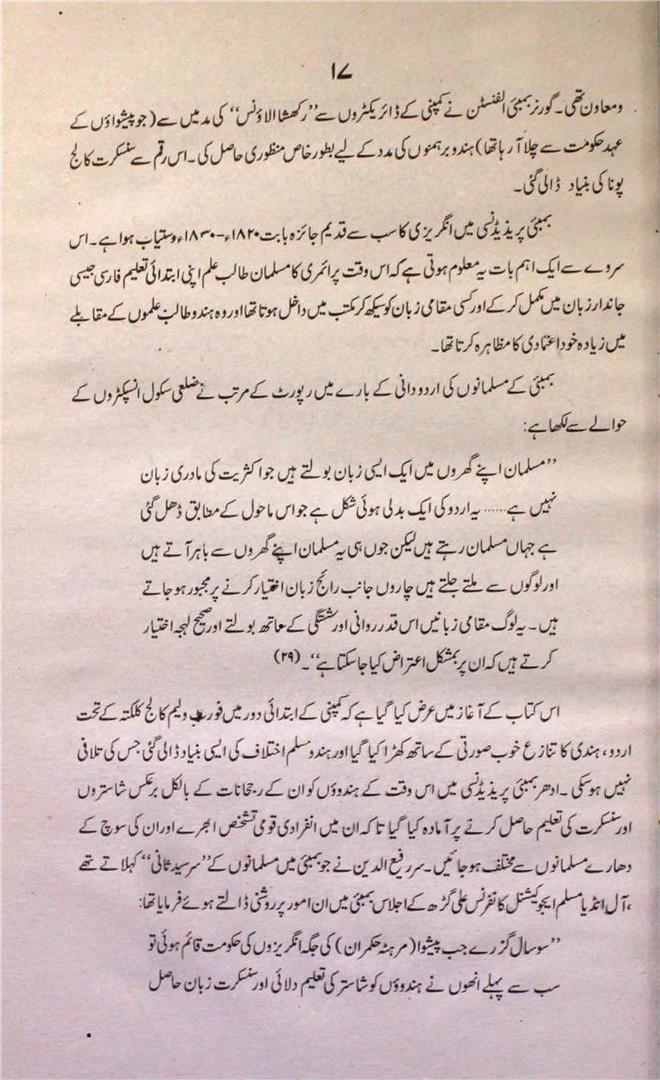 ۱۷
و معاون تھی۔ گورنر بمبئی الفنسٹن نے کمپنی کے ڈائریکٹروں سے ’’رکھشا الاؤنس‘‘ کی مد میں سے (جو پیشواؤں کے
عہد حکومت سے چلا آ رہا تھا) ہندو برہمنوں کی مدد کے لیے بطور خاص منظوری حاصل کی۔ اس رقم سے سنسکرت کالج
پونا کی بنیاد ڈالی گئی۔
بمبئی پریذیڈنسی میں انگریزی کا سب سے قدیم جائزہ بابت ۱۸۲۰ء-۱۸۳۰ء دستیاب ہوا ہے۔ اس
سروے سے ایک اہم بات یہ معلوم ہوتی ہے کہ اس وقت پرائمری کا مسلمان طالب علم اپنی ابتدائی تعلیم فارسی جیسی
جاندار زبان میں مکمل کر کے اور کسی مقامی زبان کو سیکھ کر مکتب میں داخل ہوتا تھا اور وہ ہندو طالب علموں کے مقابلے
میں زیادہ خود اعتمادی کا مظاہرہ کرتا تھا۔
بمبئی کے مسلمانوں کی اردو دانی کے بارے میں رپورٹ کے مرتب نے ضلعی سکول انسپکٹروں کے
حوالے سے لکھا ہے:
’’مسلمان اپنے گھروں میں ایک ایسی زبان بولتے ہیں جو اکثریت کی مادری زبان
نہیں ہے...... یہ اردو کی ایک بدلی ہوئی شکل ہے جو اس ماحول کے مطابق ڈھل گئی
ہے جہاں مسلمان رہتے ہیں لیکن جوں ہی یہ مسلمان اپنے گھروں سے باہر آتے ہیں
اور لوگوں سے ملتے جلتے ہیں چاروں جانب رائج زبان اختیار کرنے پر مجبور ہو جاتے
ہیں۔ یہ لوگ مقامی زبانیں اس قدر روانی اور شستگی کے ساتھ بولتے اور صحیح لہجہ اختیار
کرتے ہیں کہ ان پر بمشکل اعتراض کیا جا سکتا ہے‘‘۔ (۲۹)
اس کتاب کے آغاز میں عرض کیا گیا ہے کہ کمپنی کے ابتدائی دور میں فورٹ ولیم کالج کلکتہ کے تحت
اردو، ہندی کا تنازع خوب صورتی کے ساتھ کھڑا کیا گیا اور ہندو مسلم اختلاف کی ایسی بنیاد ڈالی گئی جس کی تلافی
نہیں ہو سکی۔ ادھر بمبئی پریذیڈنسی میں اس وقت کے ہندوؤں کو ان کے رجحانات کے بالکل برعکس شاستروں
اور سنسکرت کی تعلیم حاصل کرنے پر آمادہ کیا گیا تا کہ ان میں انفرادی قومی تشخص ابھرے اور ان کی سوچ کے
دھارے مسلمانوں سے مختلف ہو جائیں۔ سر رفیع الدین نے جو بمبئی میں مسلمانوں کے ’’سر سید ثانی‘‘ کہلاتے تھے
،آل انڈیا مسلم ایجوکیشنل کانفرنس علی گڑھ کے اجلاس بمبئی میں ان امور پر روشنی ڈالتے ہوئے فرمایا تھا:
’’سو سال گزرے جب پیشوا (مرہٹہ حکمران) کی جگہ انگریزوں کی حکومت قائم ہوئی تو
سب سے پہلے انھوں نے ہندوؤں کو شاستر کی تعلیم دلائی اور سنسکرت زبان حاصل